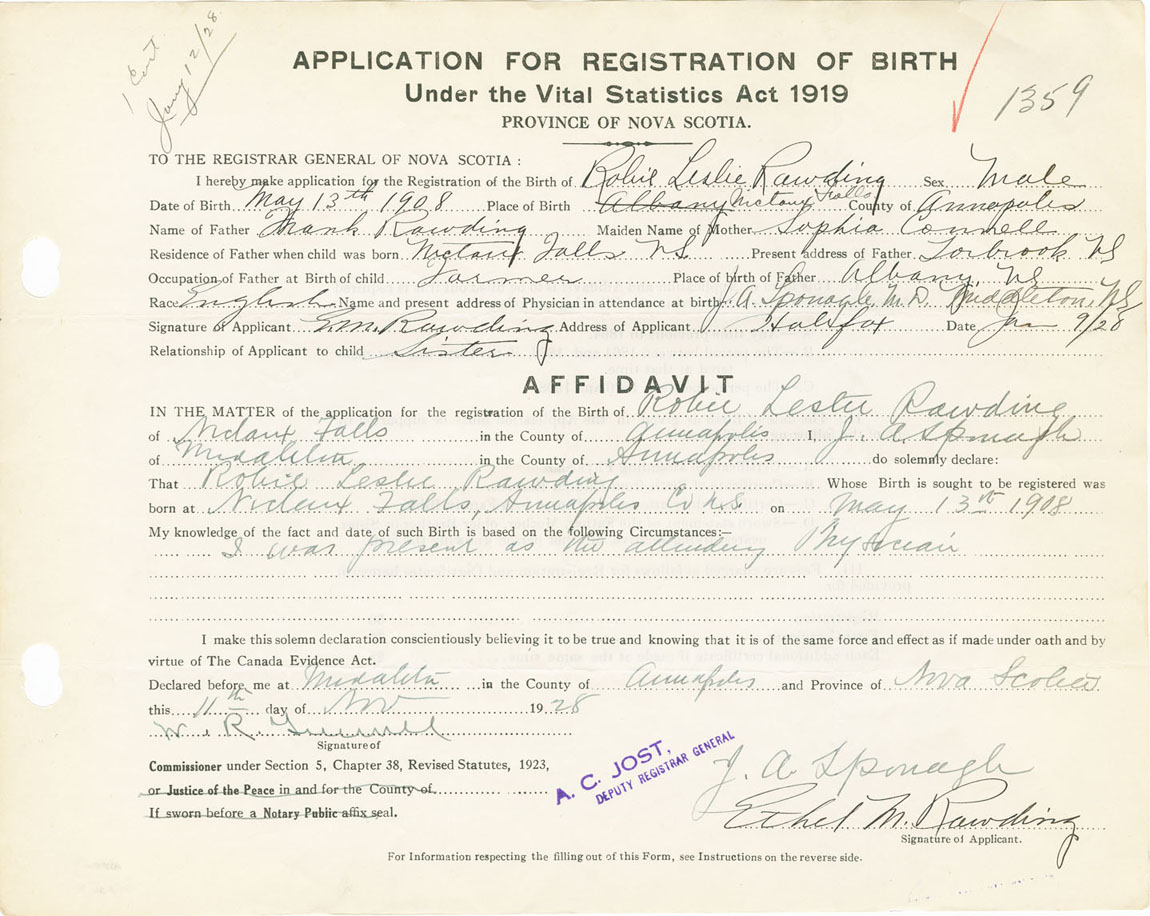 1 Cert
Jany 12/28
1359
APPLICATION FOR REGISTRATION OF BIRTH
Under the Vital Statistics Act 1919
PROVINCE OF NOVA SCOTIA.
TO THE REGISTRAR GENERAL OF NOVA SCOTIA :
I hereby make application for the Registration of the Birth of Robie Leslie Rawding Sex Male
Date of Birth May 13th 1908 Place of Birth Albany Nictaux Falls County of Annapolis
Name of Father Frank Rawding Maiden Name of Mother Sophia Connell
Residence of Father when child was born Nictaux Falls NS Present address of Father Torbrook NS
Occupation of Father at Birth of child Farmer Place of birth of Father Albany NS
Race English Name and present address of Physician in attendance at birth J. A. Sponagle M.D. Middleton, NS
Signature of Applicant E.M. Rawding Address of Applicant Halifax Date Jan 9/28
Relationship of Applicant to child Sister
AFFIDAVIT
IN THE MATTER of the application for the registration of the Birth of Robie Leslie Rawding
of Nictaux Falls in the County of Annapolis I, J. A Sponagle
of Middleton in the County of Annapolis do solemnly declare:
That Robie Leslie Rawding Whose Birth is sought to be registered was
born at Nictaux Falls, Annapolis Co N.S. on May 13th 1908
My knowledge of the fact and date of such Birth is based on the following Circumstances:—
I was present as the attending Physician
I make this solemn declaration conscientiously believing it to be true and knowing that it is of the same force and effect as if made under oath and by
virtue of The Canada Evidence Act.
Declared before me at Middleton in the County of Annapolis and Province of Nova Scotia
this 11th day of Nov 1928
W. R.
Signature of
Commissioner under Section 5, Chapter 38, Revised Statutes, 1923,
or Justice of the Peace in and for the County of
If sworn before a Notary Public affix seal.
A. C. JOST,
DEPUTY REGISTRAR GENERAL
J. A Sponagle
Ethel M. Rawding
Signature of Applicant.
For Information respecting the filling out of this Form, see Instructions on the reverse side.